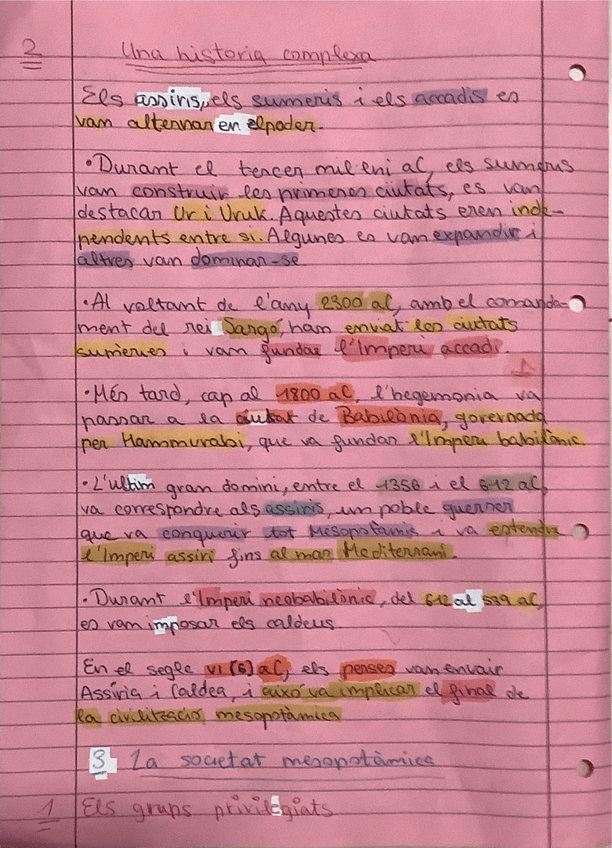 2 Una historia complexa
Els assiris, els sumeris i els accadis es
van alternar en el poder.
• Durant el tercer mil·leni aC, els sumeris
van construir les primeres ciutats, es van
destacar Ur i Uruk. Aquestes ciutats eren inde-
pendents entre si. Algunes es van expandir i
altres van dominar-se
• Al voltant de l'any 2300 aC, amb el comanda-
ment del rei Sargó, han enviat les ciutats
sumèries i van fundar l'Imperi accadi.
• Més tard, cap al 1800 aC, l'hegemonia va
passar a la ciutat de Babilònia, governada
per Hammurabi, que va fundar l'Imperi babilònic.
• L'ultim gran domini, entre el 1356 i el 612 aC,
va correspondre als assiris, un poble guerrer
que va conquerir tot Mesopotàmia i va estendre
l'Imperi assiri fins al mar Mediterrani.
• Durant l'Imperi neobabilònic, del 612 al 539 aC,
es vam imposar els caldeus.
En el segle VI (6) aC, els perses van envair
Assíria i Caldea, i això va implicar el final de
la civilització mesopotàmica
3. La societat mesopotàmica
1 Els grups privilegiats